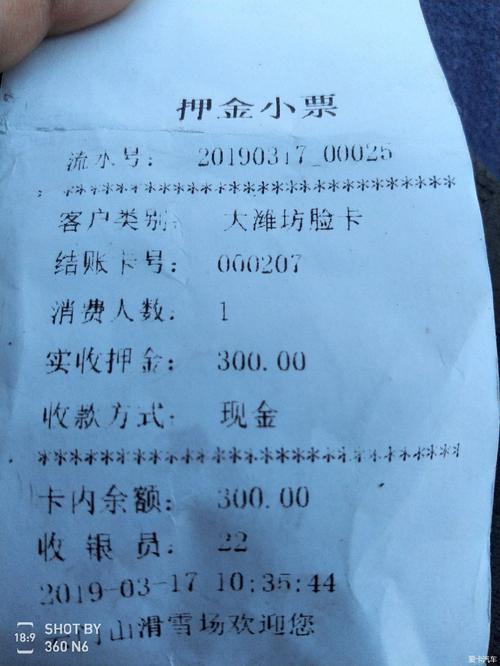 押金小票
流水号： 20190317_00025
************************************
客户类别： 大潍坊脸卡
结账卡号： 000207
消费人数： 1
实收押金： 300.00
收款方式： 现金
************************************
卡内余额： 300.00
收银员： 22
2019-03-17 10:35:44
山滑雪场欢迎您
18:9
SHOT BY
360 N6
爱卡汽车